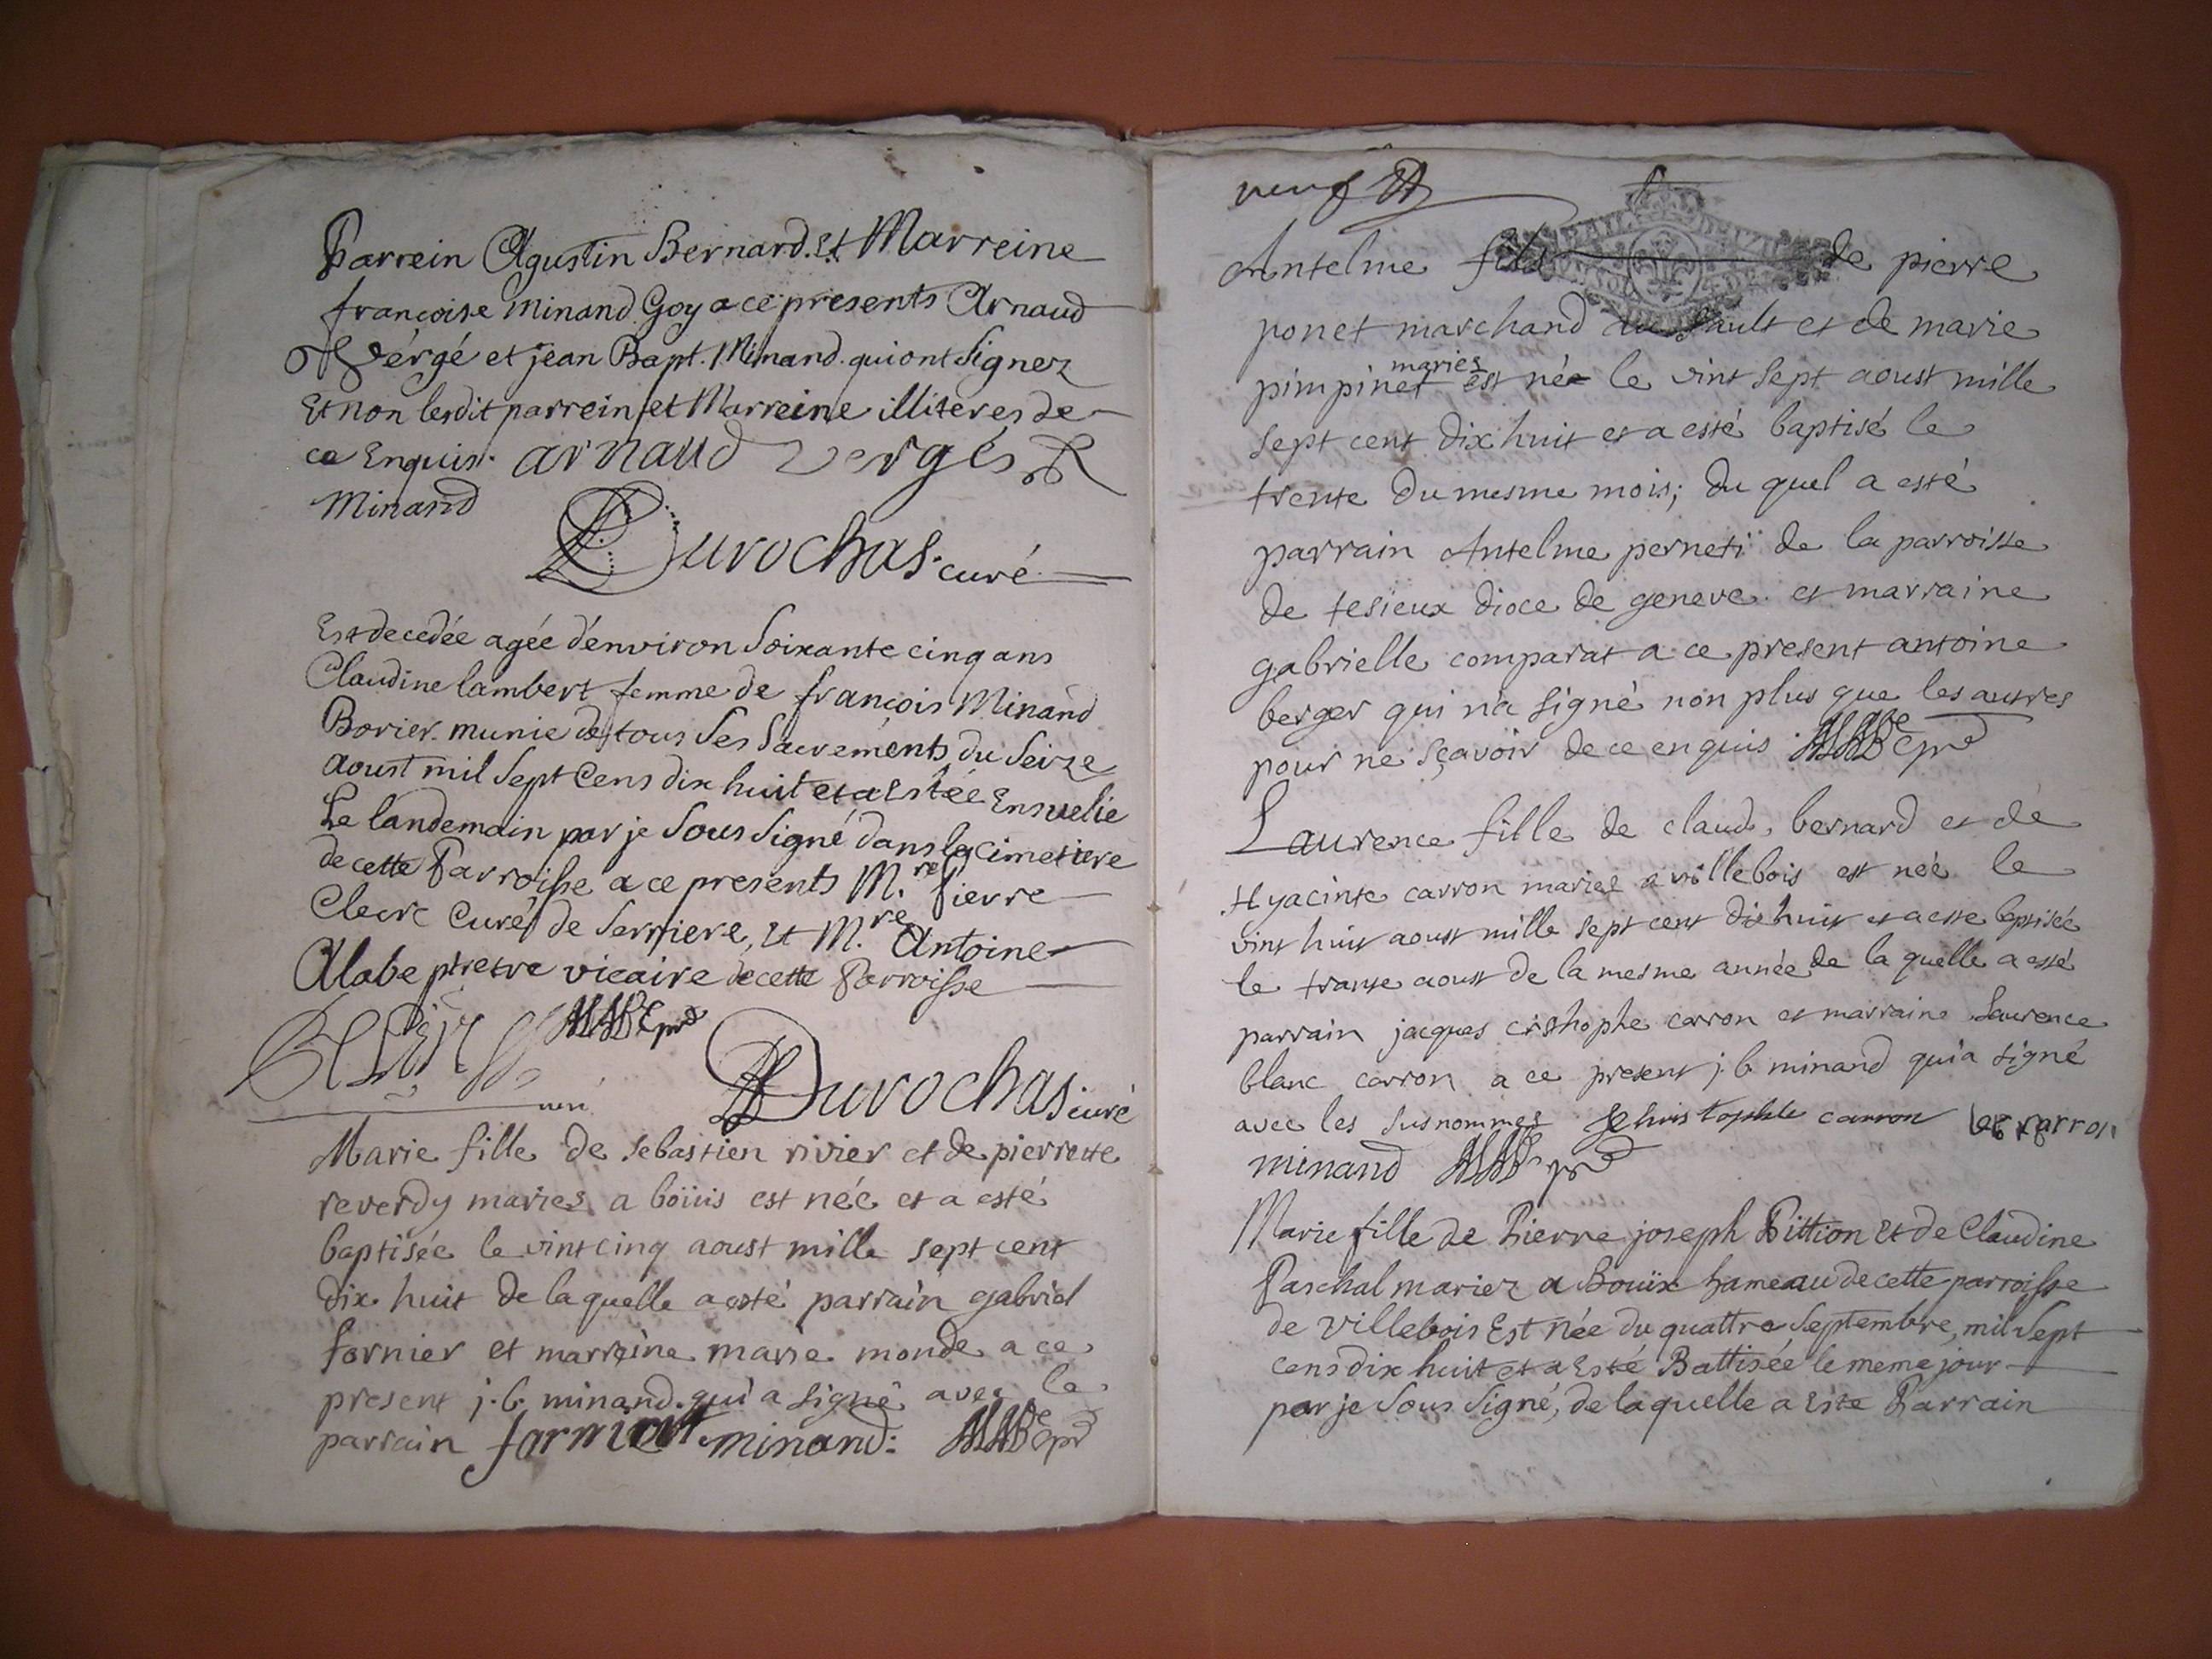 Parrein Agustin Bernard. et Marreine
françoise Minand Goy a ce presents Arnaud
Vérgé et jean Bapt. Minand. qui ont Signez
Et non lesdit parrein et Marreine illiteres de
ce Enquis. arnaud verges
Minand
Durochas. curé
Est decedée agée d'environ Soixante cinq ans
Claudine lambert femme de françois Minand
Borier. munie de tous Ses Sacrements, du Seize
aoust mil Sept Cens dix huit et a Estée Ensuelie
Le landemain par je Sous Signé dans le cimetiere
de cette Parroisse a ce presents M.re Pierre
Clerc Curé de Serriere, et M.re Antoine
Alabe ptretre vicaire de cette Parroisse
Durochas curé
Marie fille de sebastien rivier et de pierrette
reverdy maries a boüis est née et a esté
baptisée le vint cinq aoust mille sept cent
dix huit de laquelle a esté parrain gabriel
fornier et marreine marie monde a ce
present j. b. minand. qui a signé avec le
parrain minand.
neuf
Antelme fils de pierre
ponet marchand au Sault et de marie
maries
pimpinet est né le vint sept aoust mille
sept cent dix huit et a esté baptisé le
trente du mesme mois; du quel a esté
parrain Antelme perneti de la parroisse
de tesieux dioce de geneve et marraine
gabrielle comparat a ce present antoine
berger qui n'a signé non plus que les autres
pour ne sçavoir de ce enquis.
Laurence fille de claude bernard et de
Hyacinte carron mariez a villebois est née le
vint huit aoust mille sept cent dix huit et a este baptisée
le trante aoust de la mesme année de la quelle a esté
parrain jacques cristhophe carron et marraine Laurence
blanc carron a ce present j. b. minand qui a signé
avec les susnommes carron
minand
Marie fille de Pierre joseph Pittion et de Claudine
Paschal mariez a Bouïx hameau de cette parroisse
de villebois Est née du quattre Septembre, mil Sept
cens dix huit et a Esté Battisée le meme jour
par je Sous Signé, de laquelle a Este Parrain